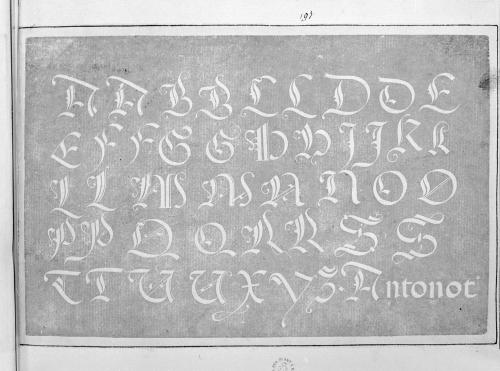 A A B B C C D D E
E F F G G H H I J K K
L L M M N N O O
P P Q Q R R S S
T T U U X Y Z. Antonot